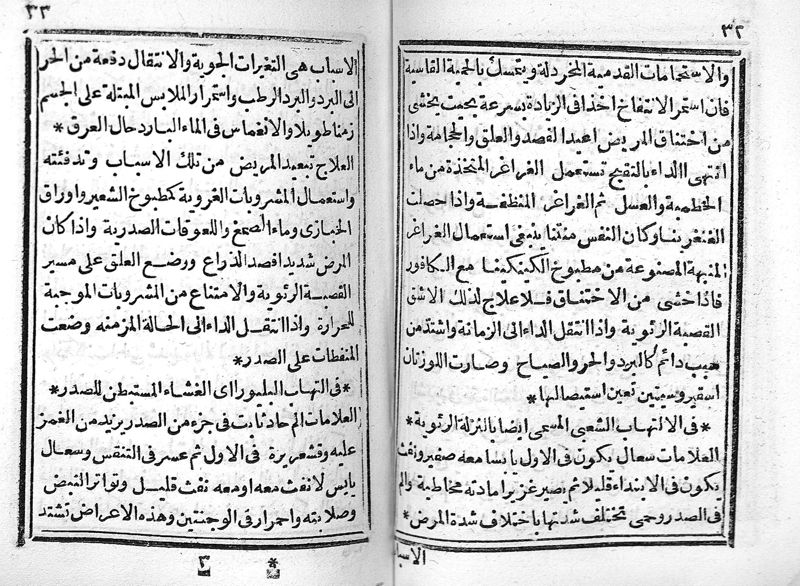 ٣٢
والاستحامات القدمية المخردلة ويتمسك بالحمية القاسية
فان استمر الانتفاخ اخذا فى الزيادة بسرعة بحيث يخشى
من اختناق المريض اعيد الفصد والعلق والحجامة واذا
انتهى الداء بالتقيح تستعمل الغراغر المتخذة من ماء
الخطمية والعسل ثم الغراغر المنظفة واذا حصلت
الغنغرينا وكان النفس منتنا ينبغى استعمال الغراغر
المنبهة المصنوعة من مطبوخ الكينكينا مع الكافور
فاذا خشى من الاختناق فلا علاج لذلك الا شق
القصبة الرئوية واذا انتقل الداء الى الزمانة واشتد من
سبب دائم كالبرد والحر والصباح وصارت اللوزتان
اسقيروسيتين تعين استيصالها*
*فى الالتهاب الشعبى المسمى ايضا بالنزلة الرئوية*
العلامات سعال يكون فى الاول يابسا معه صفير ونفث
يكون فى الابتداء قليلا ثم يصير غزيرا مادته مخاطية والم
فى الصدر وحمى تختلف شدتها باختلاف شدة المرض*
الاسباب
٣٣
الاسباب هى التغيرات الجوية والانتقال دفعة من الحر
الى البرد والبرد الرطب واستمرار الملابس المبتلة على الجسم
زمنا طويلا والانغماس فى الماء البارد حال العرق*
العلاج تبعيد المريض من تلك الاسباب وتدفئته
واستعمال المشروبات الغروية كمطبوخ الشعير واوراق
الخبازى وماء الصمغ واللعوقات الصدرية واذا كان
المرض شديدا فصد الذراع ووضع العلق على مسير
القصبة الرئوية والامتناع من المشروبات الموجبة
للحرارة واذا انتقل الداء الى الحالة المزمنه وضعت
المنفطات على الصدر*
*فى التهاب البليورا اى الغشاء المستبطن للصدر*
العلامات الم حاد ثابت فى جزء من الصدر يزيد من الغمز
عليه وقشعريرة فى الاول ثم عسر فى التنفس وسعال
يابس لا نفث معه او معه نفث قليل وتواتر النبض
وصلابته واحمرار فى الوجنتين وهذه الاعراض تشتد
* ٣